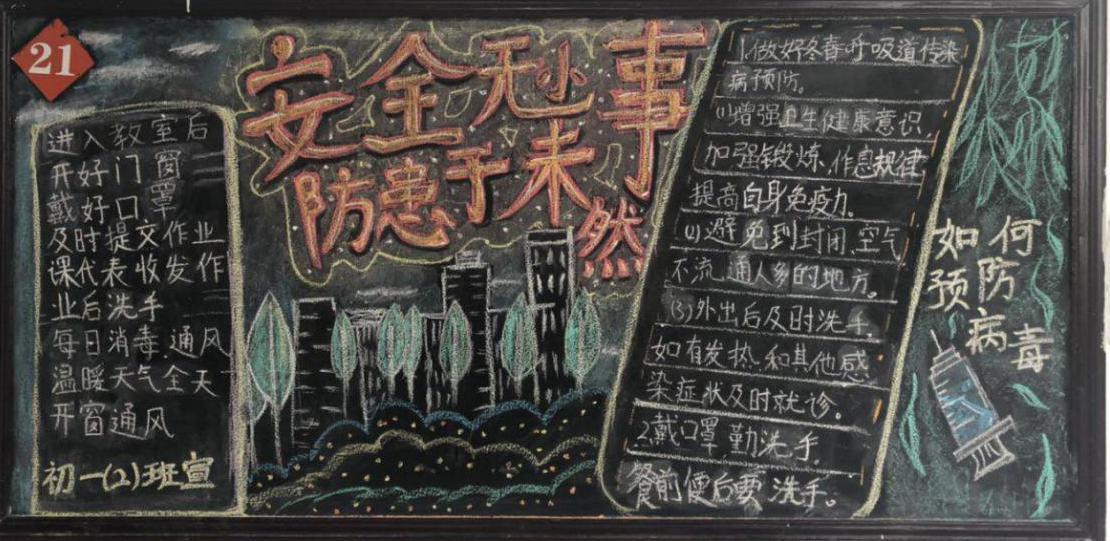 21
安全无小事
防患于未然
进入教室后
开好门窗
戴好口罩
及时提交作业
课代表收发作
业后洗手
每日消毒.通风
温暖天气全天
开窗通风
初一(2)班宣
1.做好冬春呼吸道传染
病预防。
(1)增强卫生健康意识,
加强锻炼,作息规律
提高自身免疫力。
(2)避免到封闭、空气
不流通人多的地方。
(3)外出后及时洗手
如有发热和其他感
染症状及时就诊。
2.戴口罩,勤洗手
餐前便后要洗手。
如何
预防
病毒